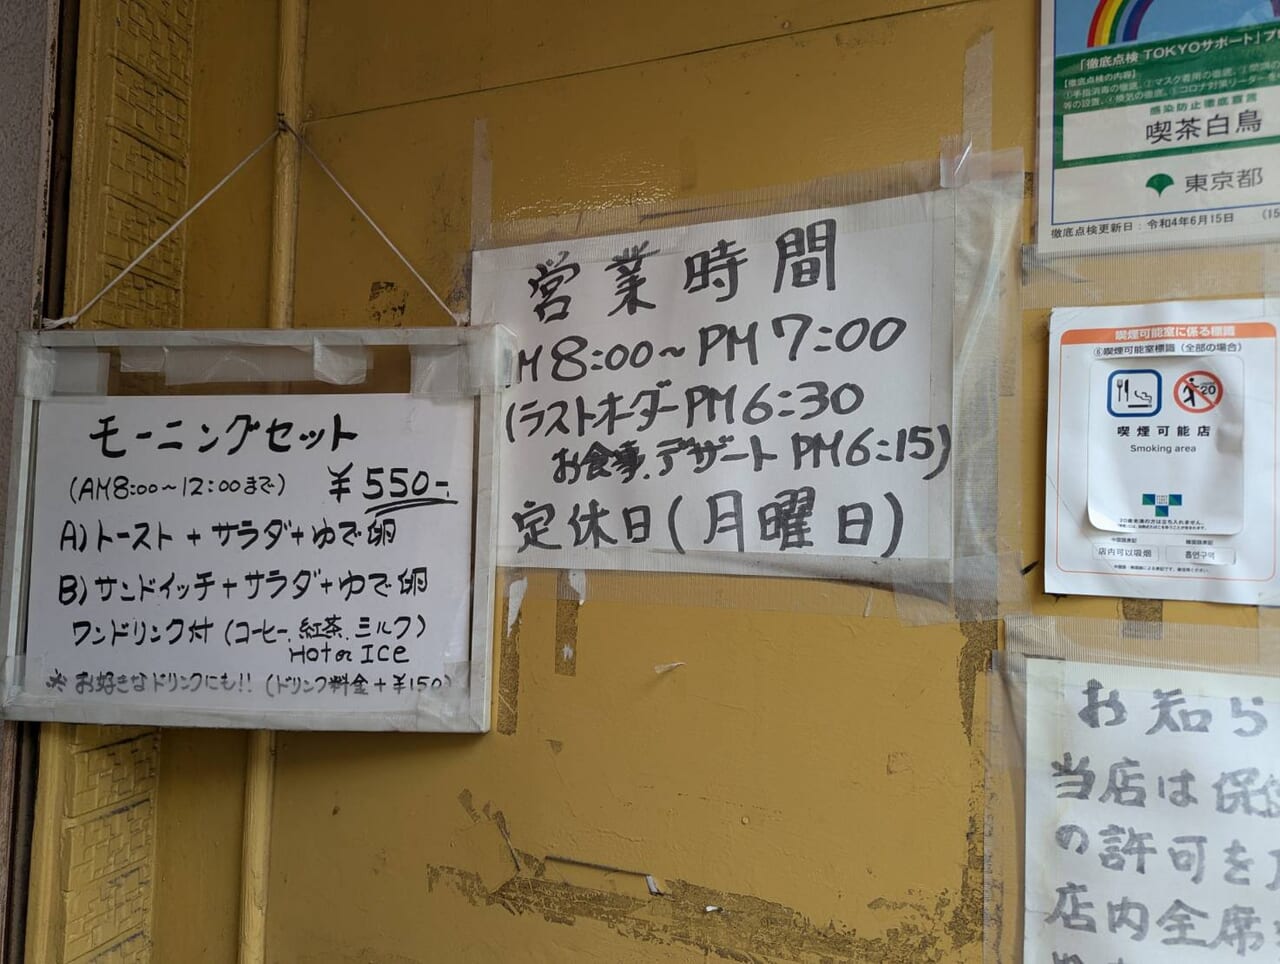 モーニングセット
(AM8:00〜12:00まで) ¥550-
A)トースト+サラダ+ゆで卵
B)サンドイッチ+サラダ+ゆで卵
ワンドリンク付(コーヒー.紅茶.ミルク)
Hot or ICe
※お好きなドリンクにも!!(ドリンク料金+¥150)
営業時間
M8:00〜PM7:00
(ラストオーダーPM6:30
お食事.デザートPM6:15)
定休日(月曜日)
「徹底点検 TOKYOサポート」プ
【徹底点検の内容】
感染防止徹底宣言
喫茶白鳥
東京都
徹底点検更新日:令和4年6月15日 (15
喫煙可能室に係る標識
⑥喫煙可能室標識(全部の場合)
20
喫煙可能店
Smoking area
店内可以吸烟 흡연구역
お知ら
当店は保
の許可を
店内全席